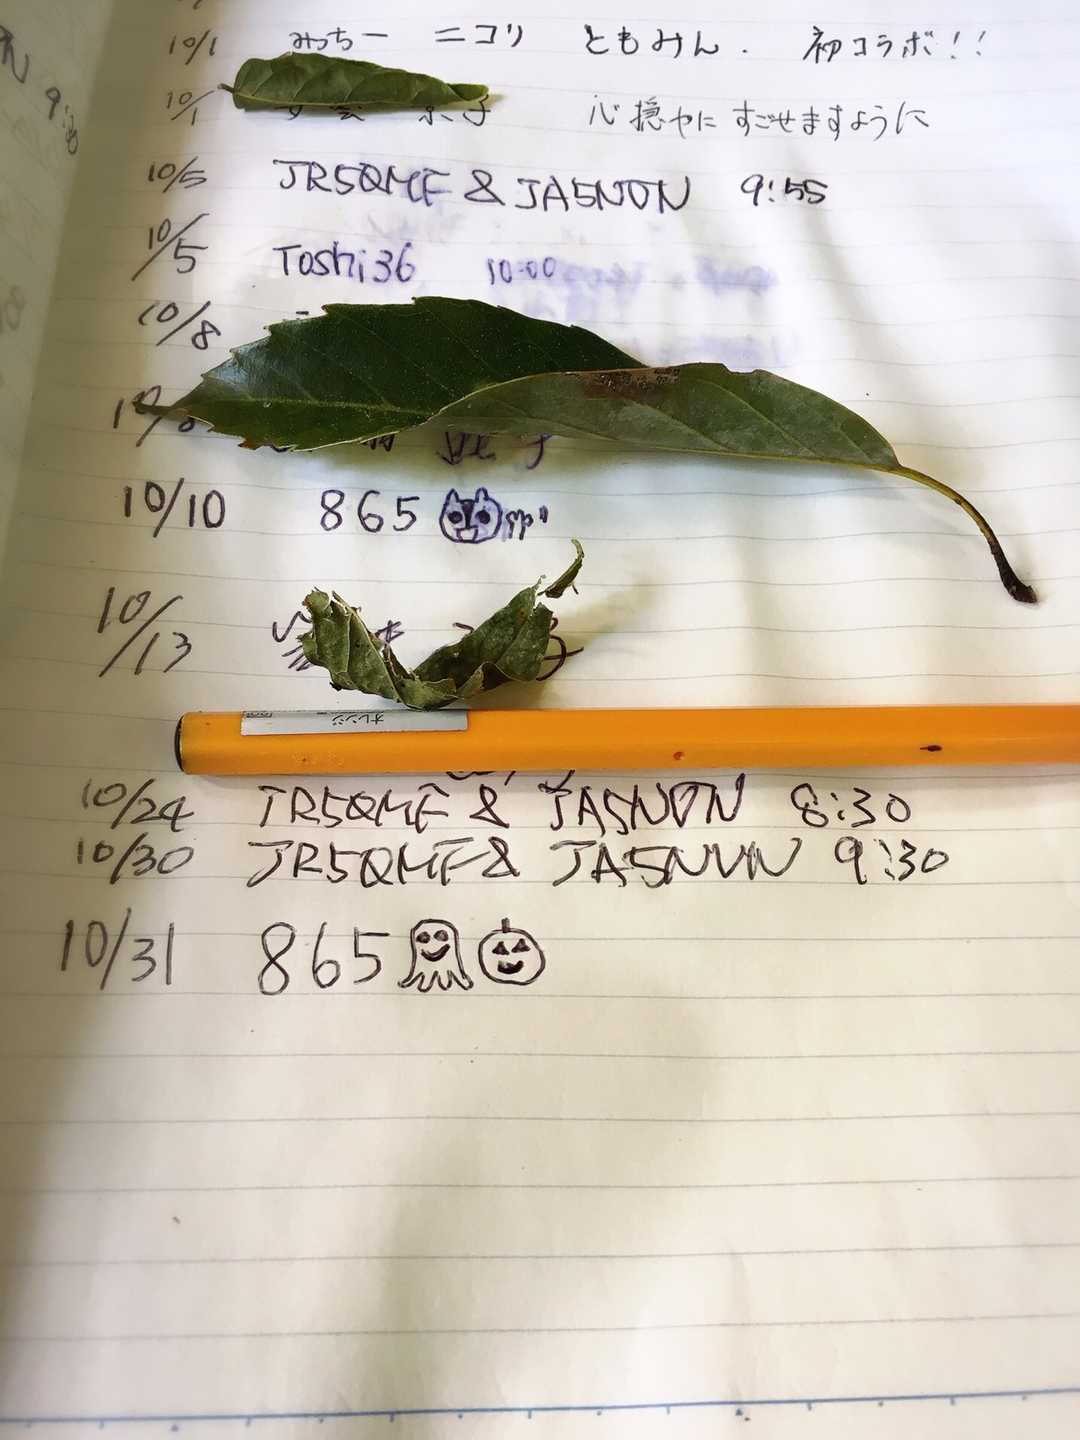 10/1 みっちー ニコリ ともみん. 初コラボ!!
10/1 子 心穏やかに すごせますように
10/5 JR5QMF & JA5NVN 9:55
10/5 Toshi36 10:00
10/8
10/10 865
10/13
オレンジ
10/24 JR5QMF & JA5NVN 8:30
10/30 JR5QMF & JA5NVN 9:30
10/31 865